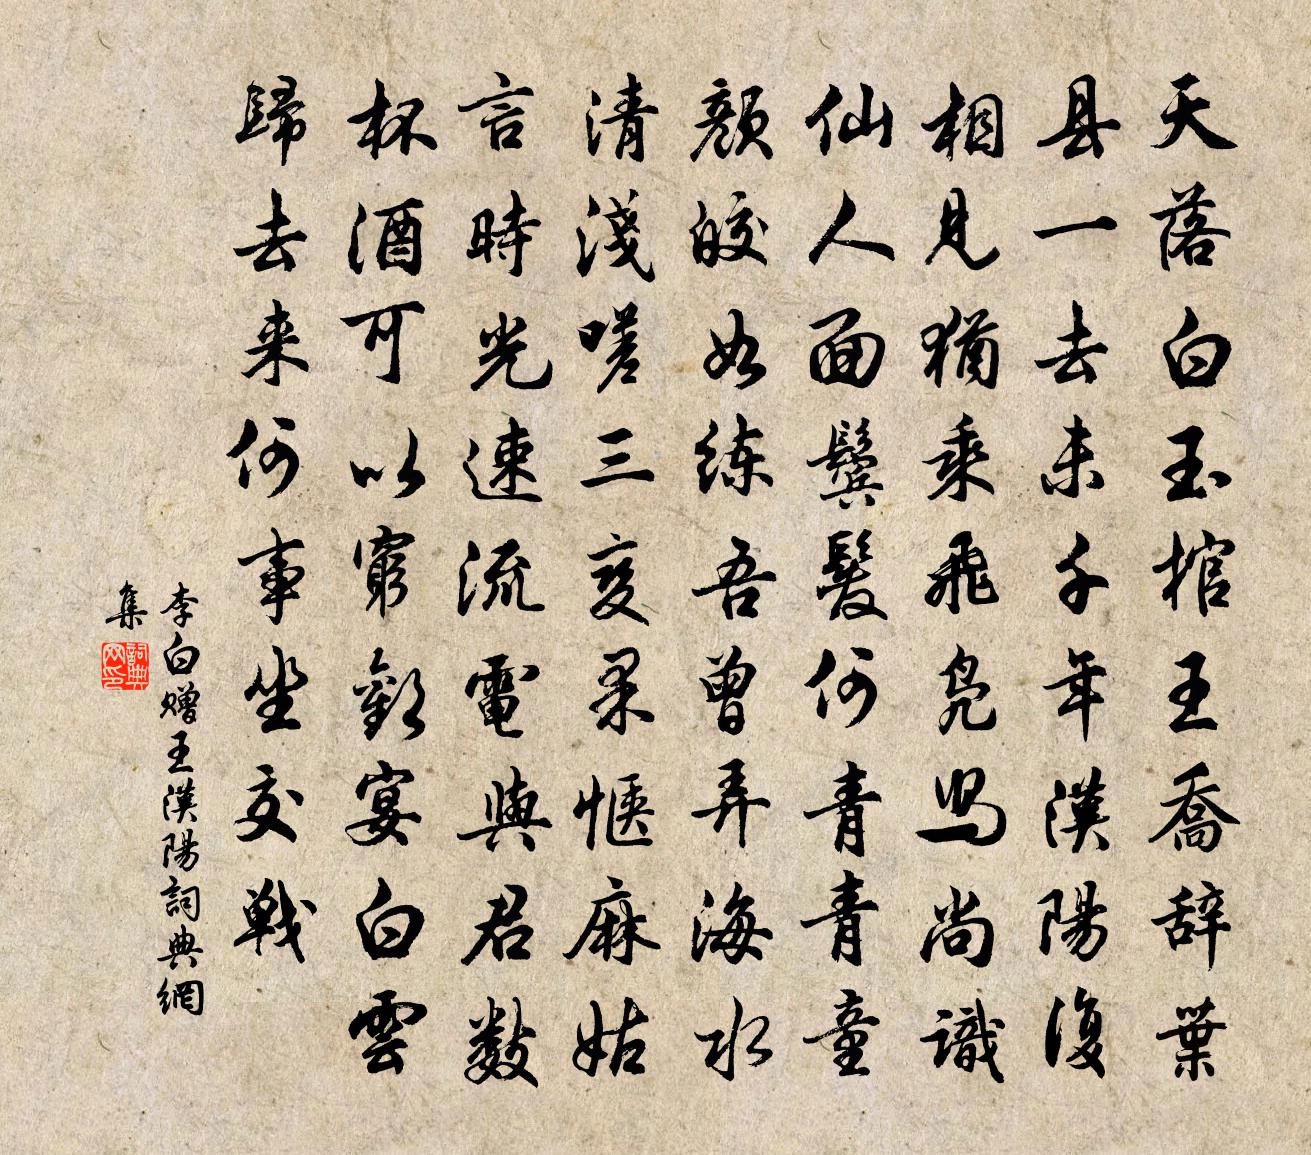 天落白玉棺王喬辞葉
县一去未千年漢陽復
相見猶乘飛凫舄尚識
仙人面鬢髮何青青童
顔皎如练吾曾弄海水
清淺嗟三变果惬麻姑
言時光速流電與君数
杯酒可以窮歡宴白雲
歸去来何事坐交戦
李白赠王漢陽詞典網
集
詞典网印